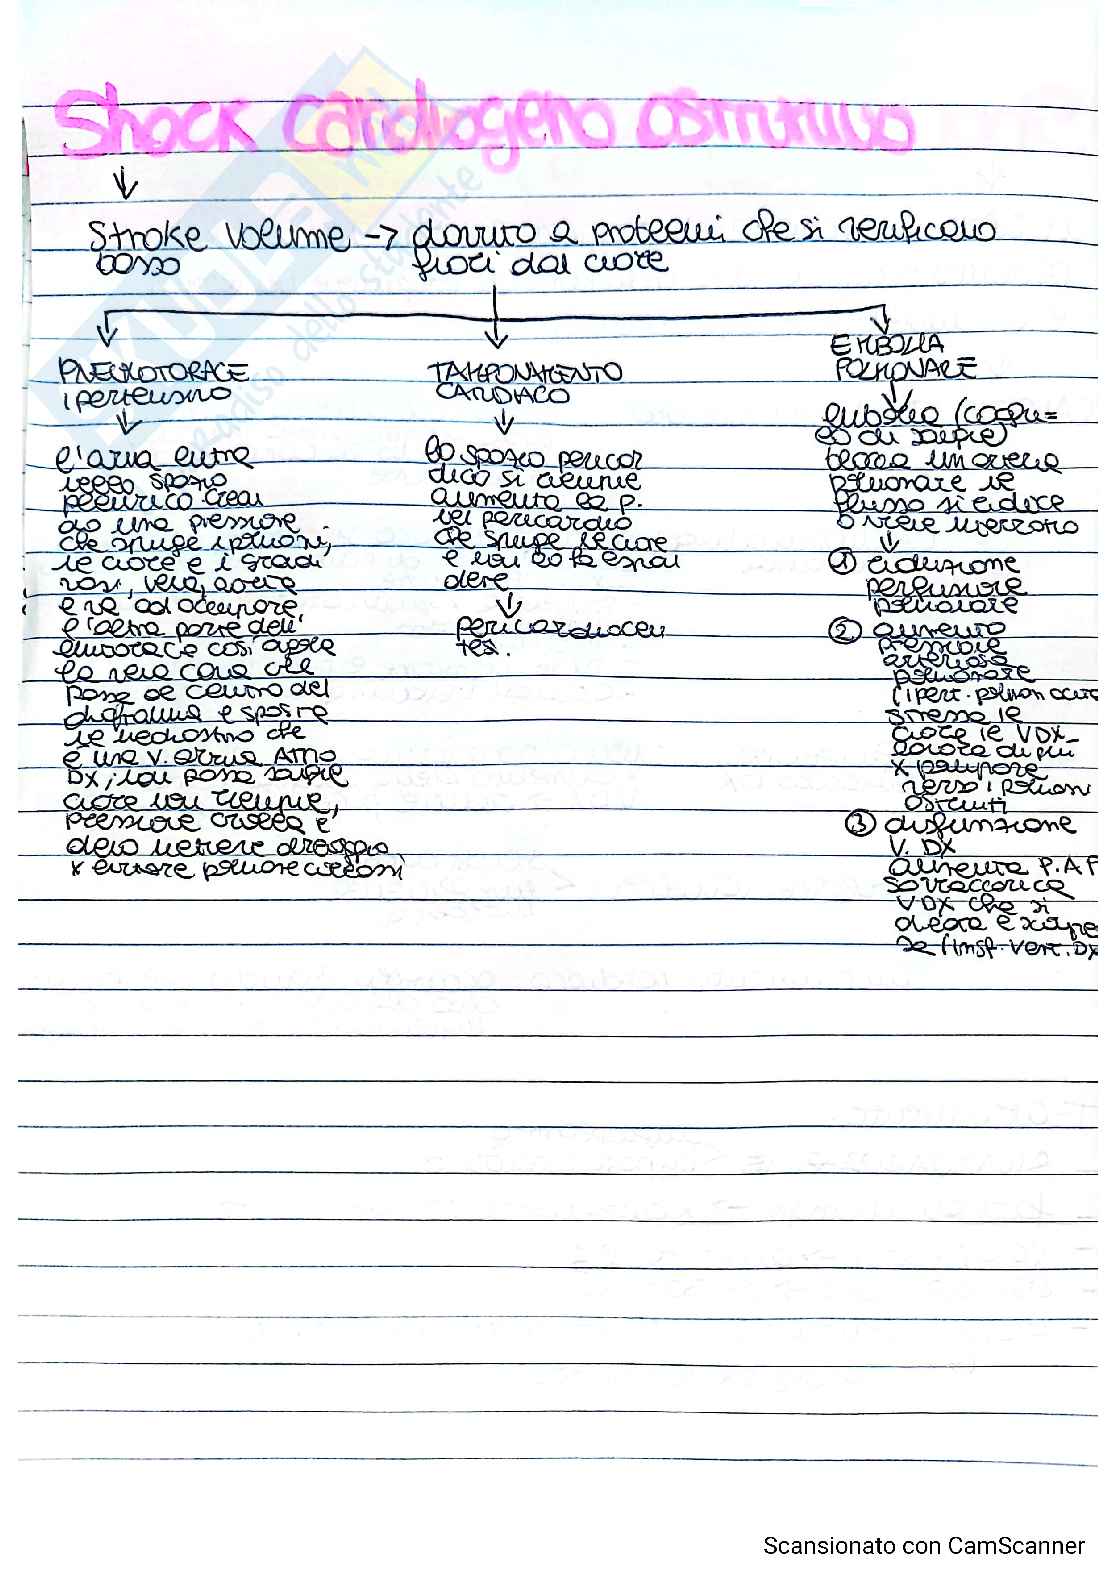 Shock cardiogeno ostruttivo
Stroke volume → dovuto a problemi che si verificano
basso fuori dal cuore
PNEUMOTORACE
ipertensivo
l'aria entra
nello spazio
pleurico crean
do una pressione
che spinge i polmoni,
il cuore e i grandi
vasi, vena, aorta
e va ad occupare
l'altra parte dell'
emitorace così anche
la vena cava che
passa al centro del
diaframma e sposta
il mediastino che
è una v. arriva Atrio
DX, non passa sangue
cuore non riempie,
pressione crolla e
devo mettere drenaggio
x evitare polmone collassi
TAMPONAMENTO
CARDIACO
lo spazio pericar
dico si riempie
aumenta la p.
nel pericardio
che spinge il cuore
e non lo fa espan
dere
pericardiocen
tesi.
EMBOLIA
POLMONARE
embolo (coagu=
lo di sangue)
blocca un'arteria
polmonare il
flusso si riduce
o viene interrotto
① riduzione
perfusione
polmonare
② aumento
pressione
arteriosa
polmonare
(ipert. polmon acuta
stressa il
cuore il VDX
lavora di più
x pompare
verso i polmoni
ostruiti
③ disfunzione
V. DX
aumenta P.AP
sovraccarica
VDX che si
dilata e scompe
sa (insf. vent. DX
Scansionato con CamScanner